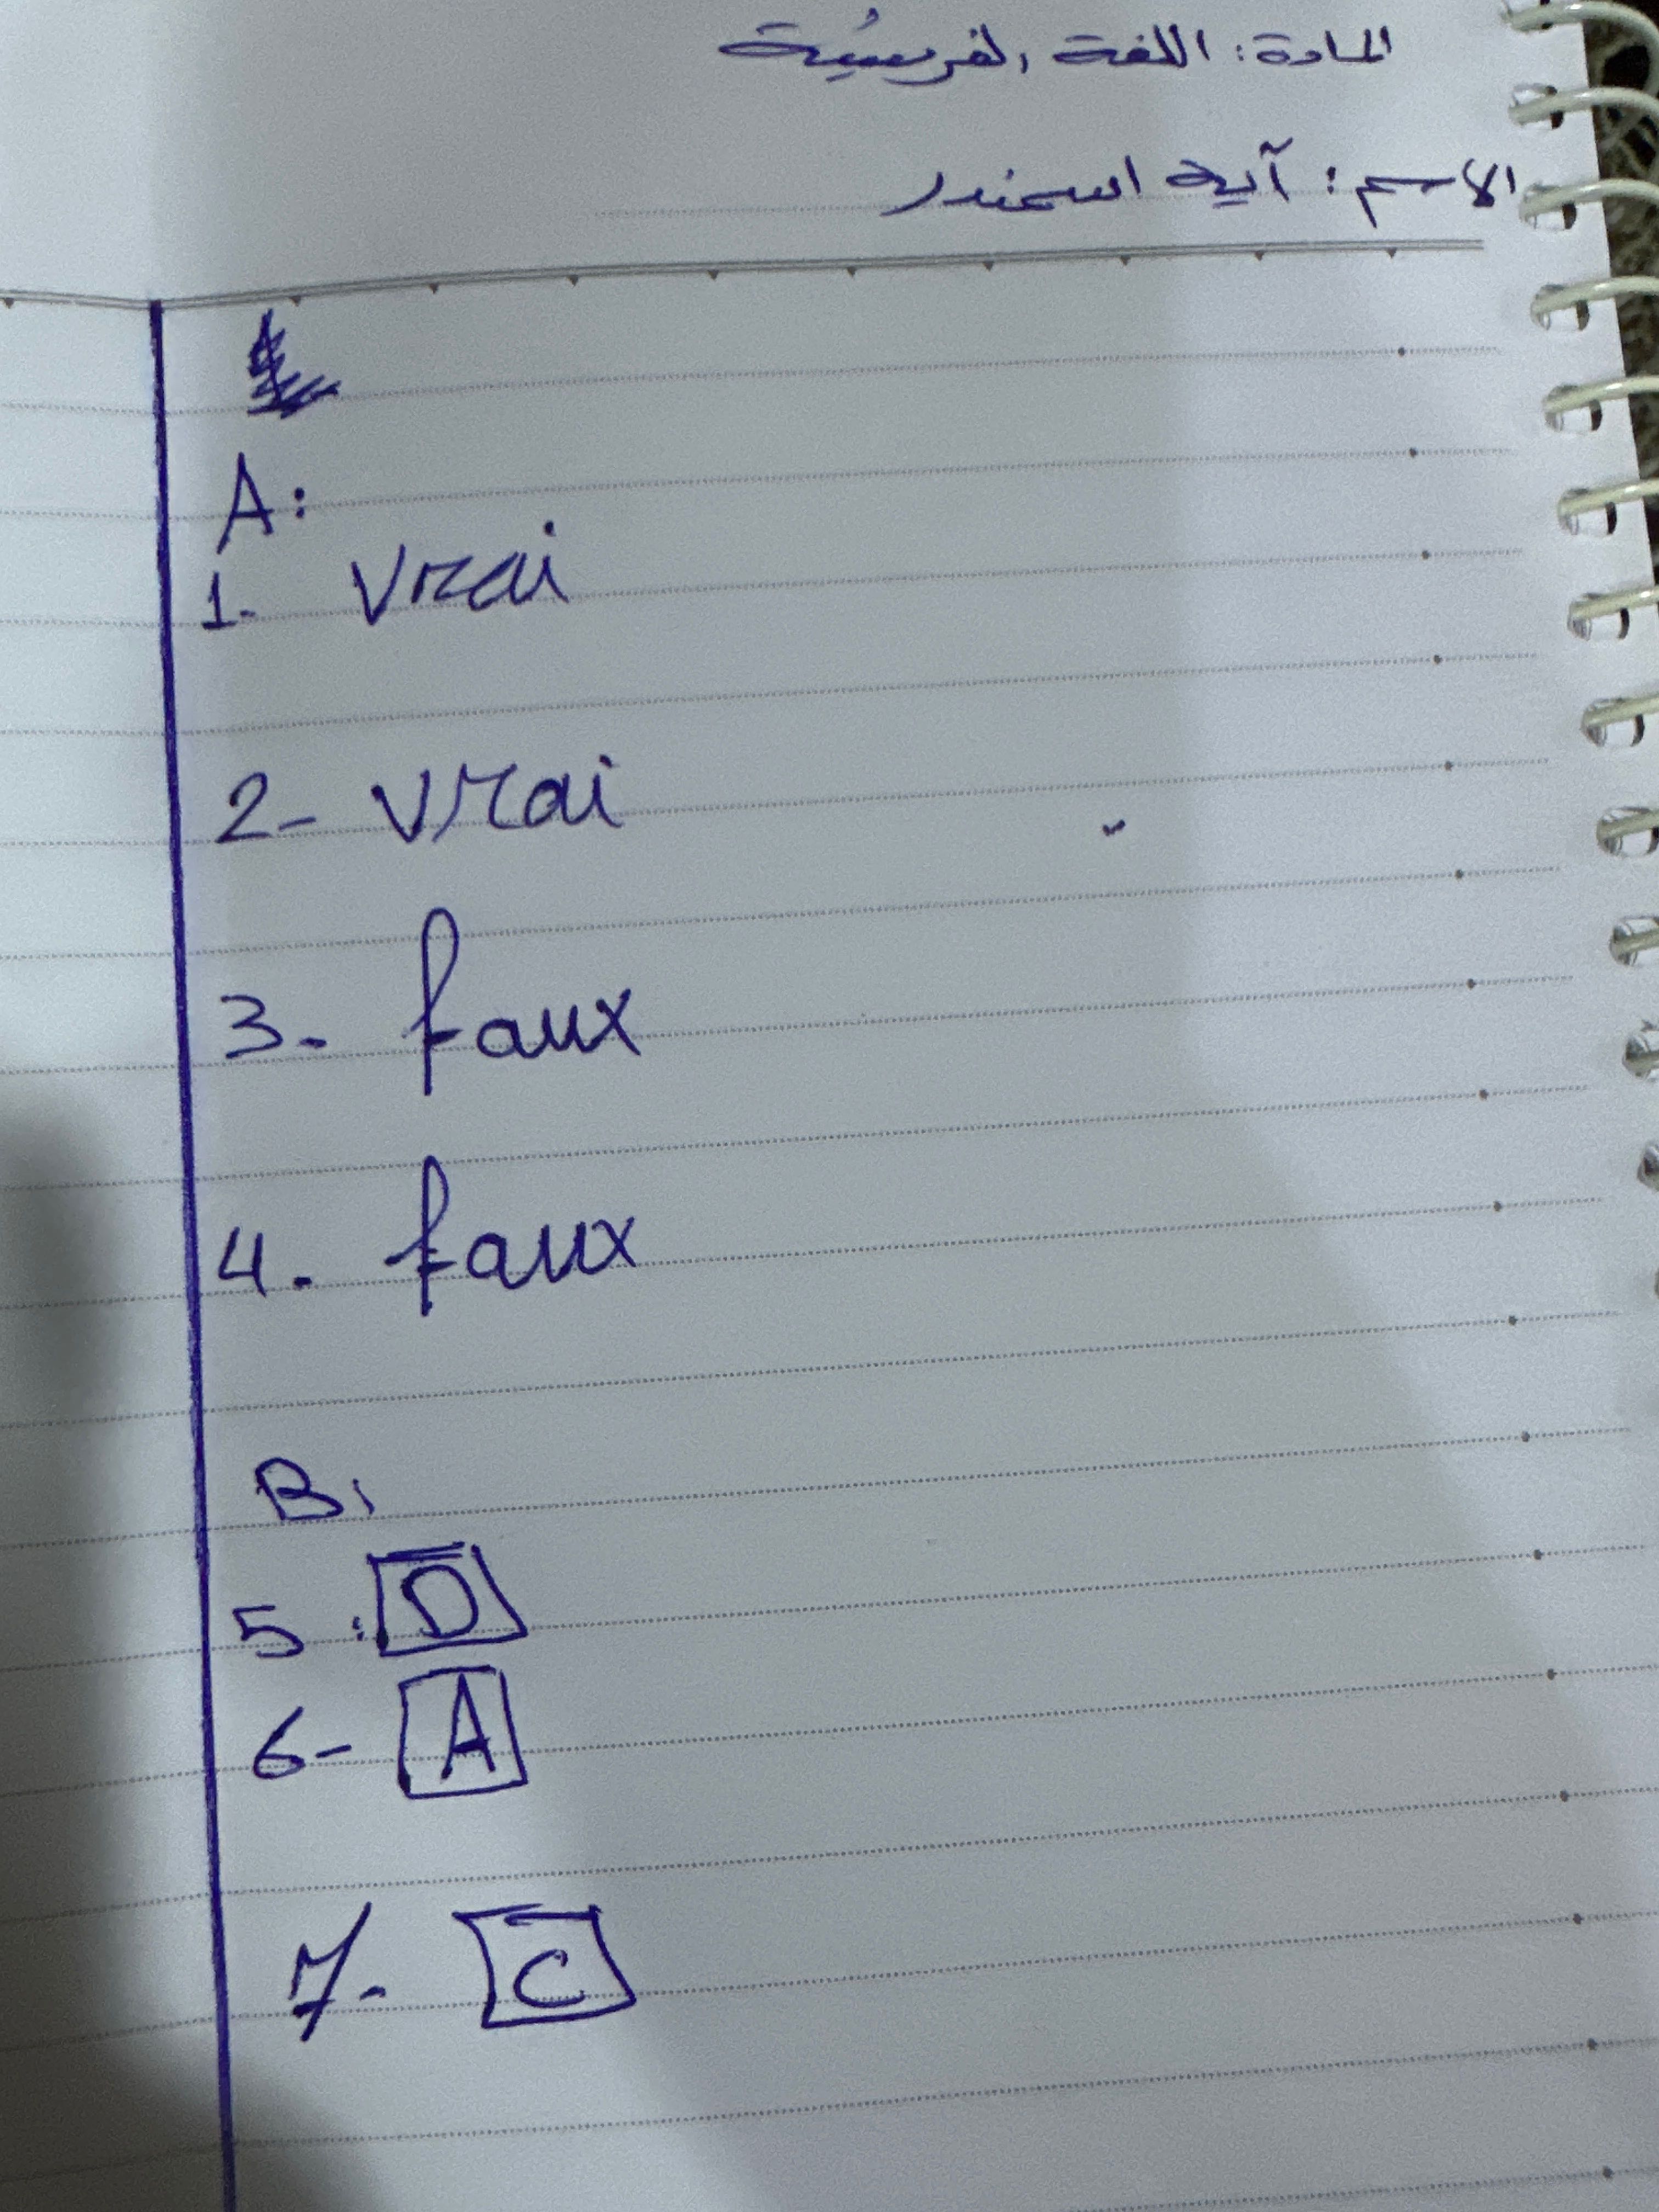 المادة: اللغة الفرنسية
الاسم: آية اسمندر
A:
1- vrai
2- vrai
3- faux
4- faux
B:
5: D
6- A
7- C